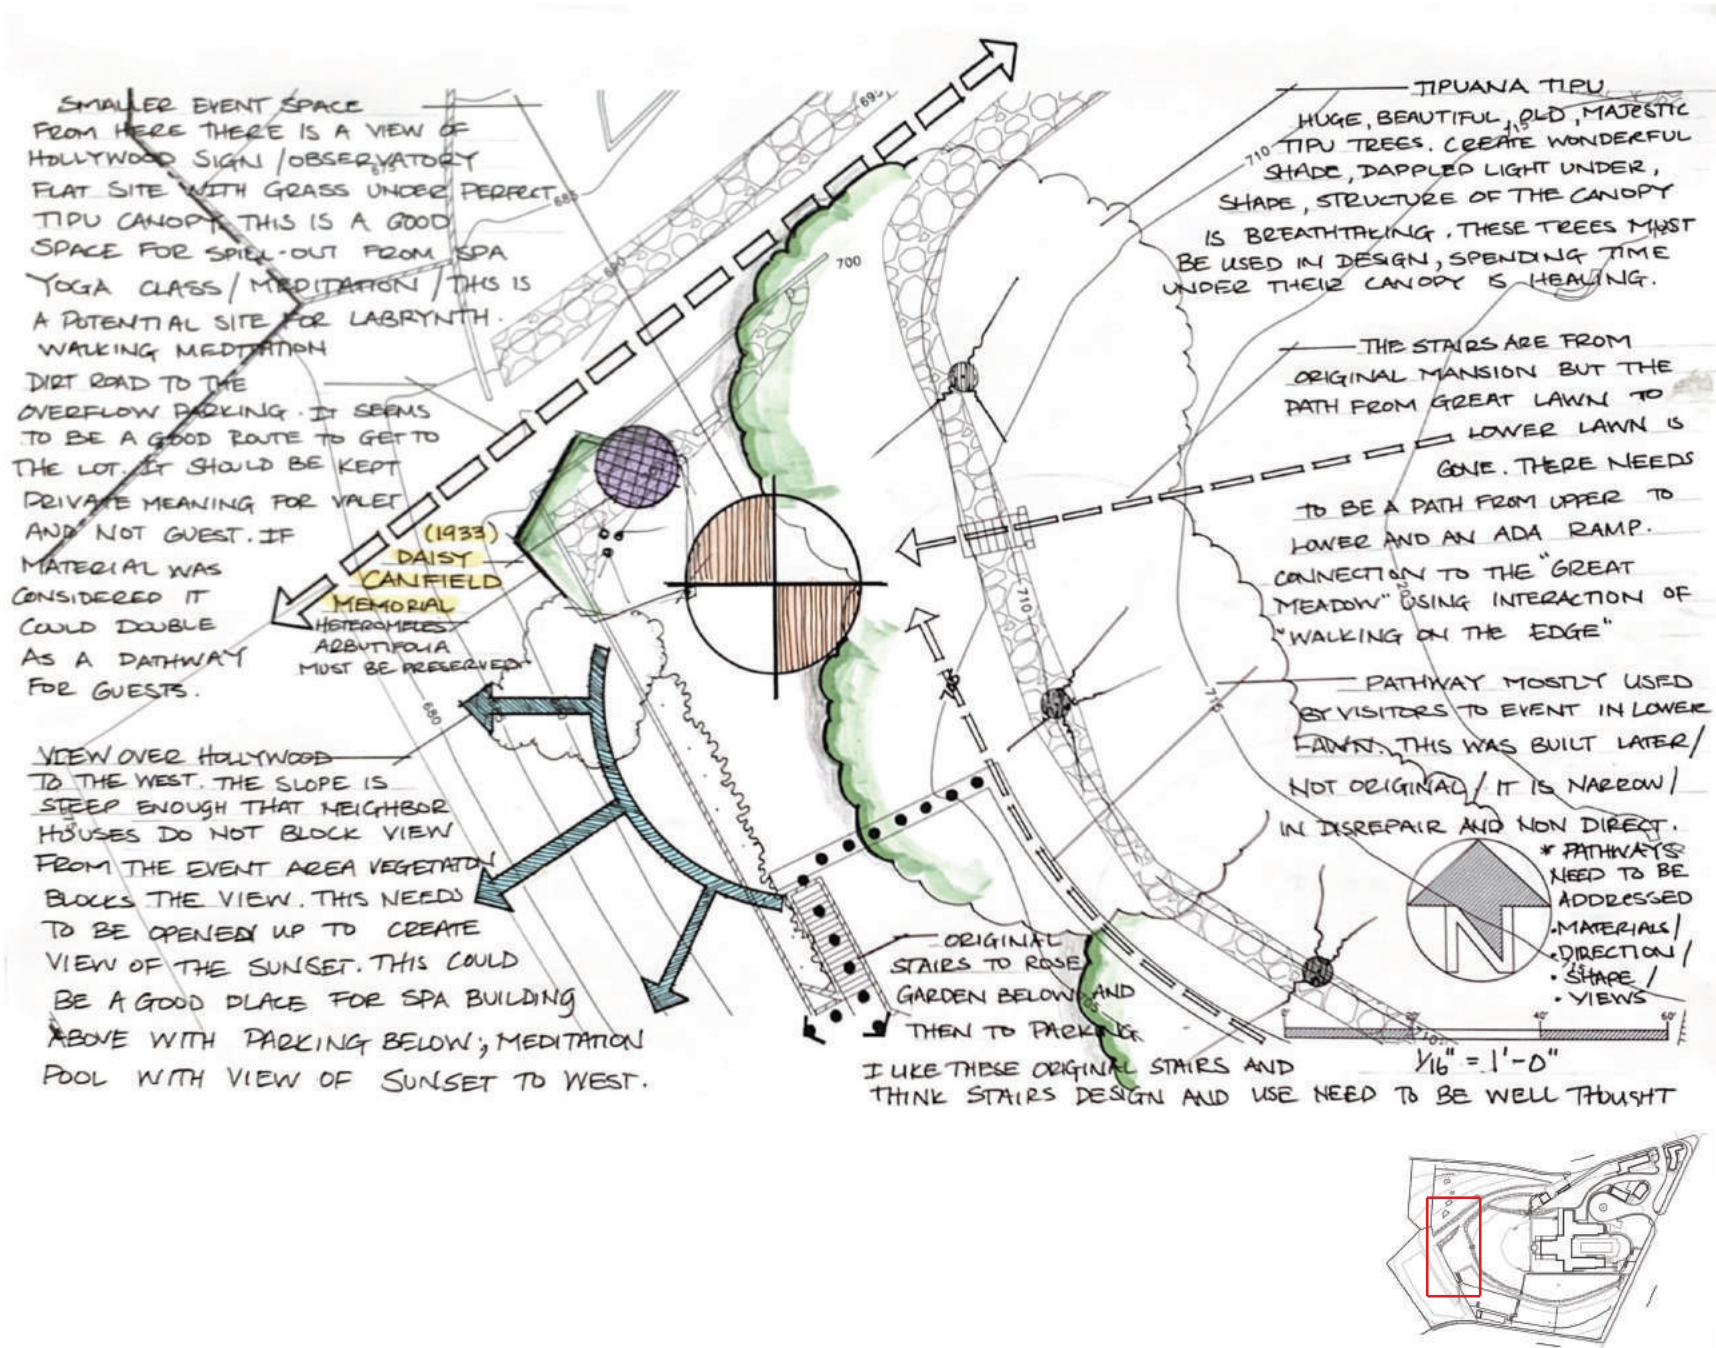 SMALLER EVENT SPACE
FROM HERE THERE IS A VIEW OF
HOLLYWOOD SIGN / OBSERVATORY
FLAT SITE WITH GRASS UNDER PERFECT
TIPU CANOPY. THIS IS A GOOD
SPACE FOR SPILL-OUT FROM SPA
YOGA CLASS / MEDITATION / THIS IS
A POTENTIAL SITE FOR LABRYNTH.
WALKING MEDITATION
DIRT ROAD TO THE
OVERFLOW PARKING. IT SEEMS
TO BE A GOOD ROUTE TO GET TO
THE LOT. IT SHOULD BE KEPT
PRIVATE MEANING FOR VALET
AND NOT GUEST. IF
MATERIAL WAS
CONSIDERED IT
COULD DOUBLE
AS A PATHWAY
FOR GUESTS.
(1933)
DAISY
CANFIELD
MEMORIAL
HETEROMELES
ARBUTIFOLIA
MUST BE PRESERVED
VIEW OVER HOLLYWOOD
TO THE WEST. THE SLOPE IS
STEEP ENOUGH THAT NEIGHBOR
HOUSES DO NOT BLOCK VIEW
FROM THE EVENT AREA VEGETATON
BLOCKS THE VIEW. THIS NEEDS
TO BE OPENED UP TO CREATE
VIEW OF THE SUNSET. THIS COULD
BE A GOOD PLACE FOR SPA BUILDING
ABOVE WITH PARKING BELOW; MEDITATION
POOL WITH VIEW OF SUNSET TO WEST.
695
675
685
690
700
680
710
710
715
715
710
TIPUANA TIPU
HUGE, BEAUTIFUL, OLD, MAJESTIC
TIPU TREES. CREATE WONDERFUL
SHADE, DAPPLED LIGHT UNDER,
SHADE, STRUCTURE OF THE CANOPY
IS BREATHTAKING. THESE TREES MUST
BE USED IN DESIGN, SPENDING TIME
UNDER THEIR CANOPY IS HEALING.
THE STAIRS ARE FROM
ORIGINAL MANSION BUT THE
PATH FROM GREAT LAWN TO
LOWER LAWN IS
GONE. THERE NEEDS
TO BE A PATH FROM UPPER TO
LOWER AND AN ADA RAMP.
CONNECTION TO THE "GREAT
MEADOW" USING INTERACTION OF
"WALKING ON THE EDGE"
PATHWAY MOSTLY USED
BY VISITORS TO EVENT IN LOWER
LAWN. THIS WAS BUILT LATER /
NOT ORIGINAL / IT IS NARROW /
IN DISREPAIR AND NON DIRECT.
* PATHWAYS
NEED TO BE
ADDRESSED
• MATERIALS /
• DIRECTION /
• SHAPE /
• VIEWS
N
0'
40'
60'
1/16" = 1'-0"
ORIGINAL
STAIRS TO ROSE
GARDEN BELOW AND
THEN TO PARKING
I LIKE THESE ORIGINAL STAIRS AND
THINK STAIRS DESIGN AND USE NEED TO BE WELL THOUGHT